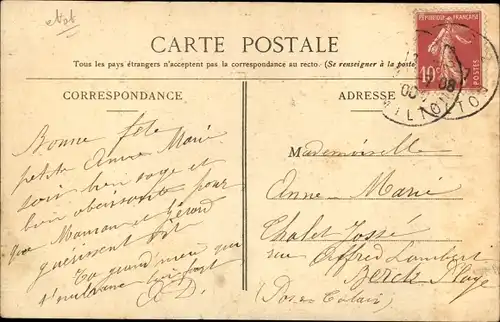 CARTE POSTALE
Tous les pays étrangers n'acceptent pas la correspondance au recto. (Se renseigner à la poste
CORRESPONDANCE
Bonne fête
petite Anne Marie
sois bien sage et
bien obéissante pour
que Maman et Gérard
guérissent vite
Ta grand'mère qui
t'embrasse bien fort
ADRESSE
REPUBLIQUE FRANÇAISE
10
POSTES
08
MILTON
Mademoiselle
Anne-Marie
Chalet Jossé
rue Alfred Lambert
Berck Plage
(Pas de Calais)